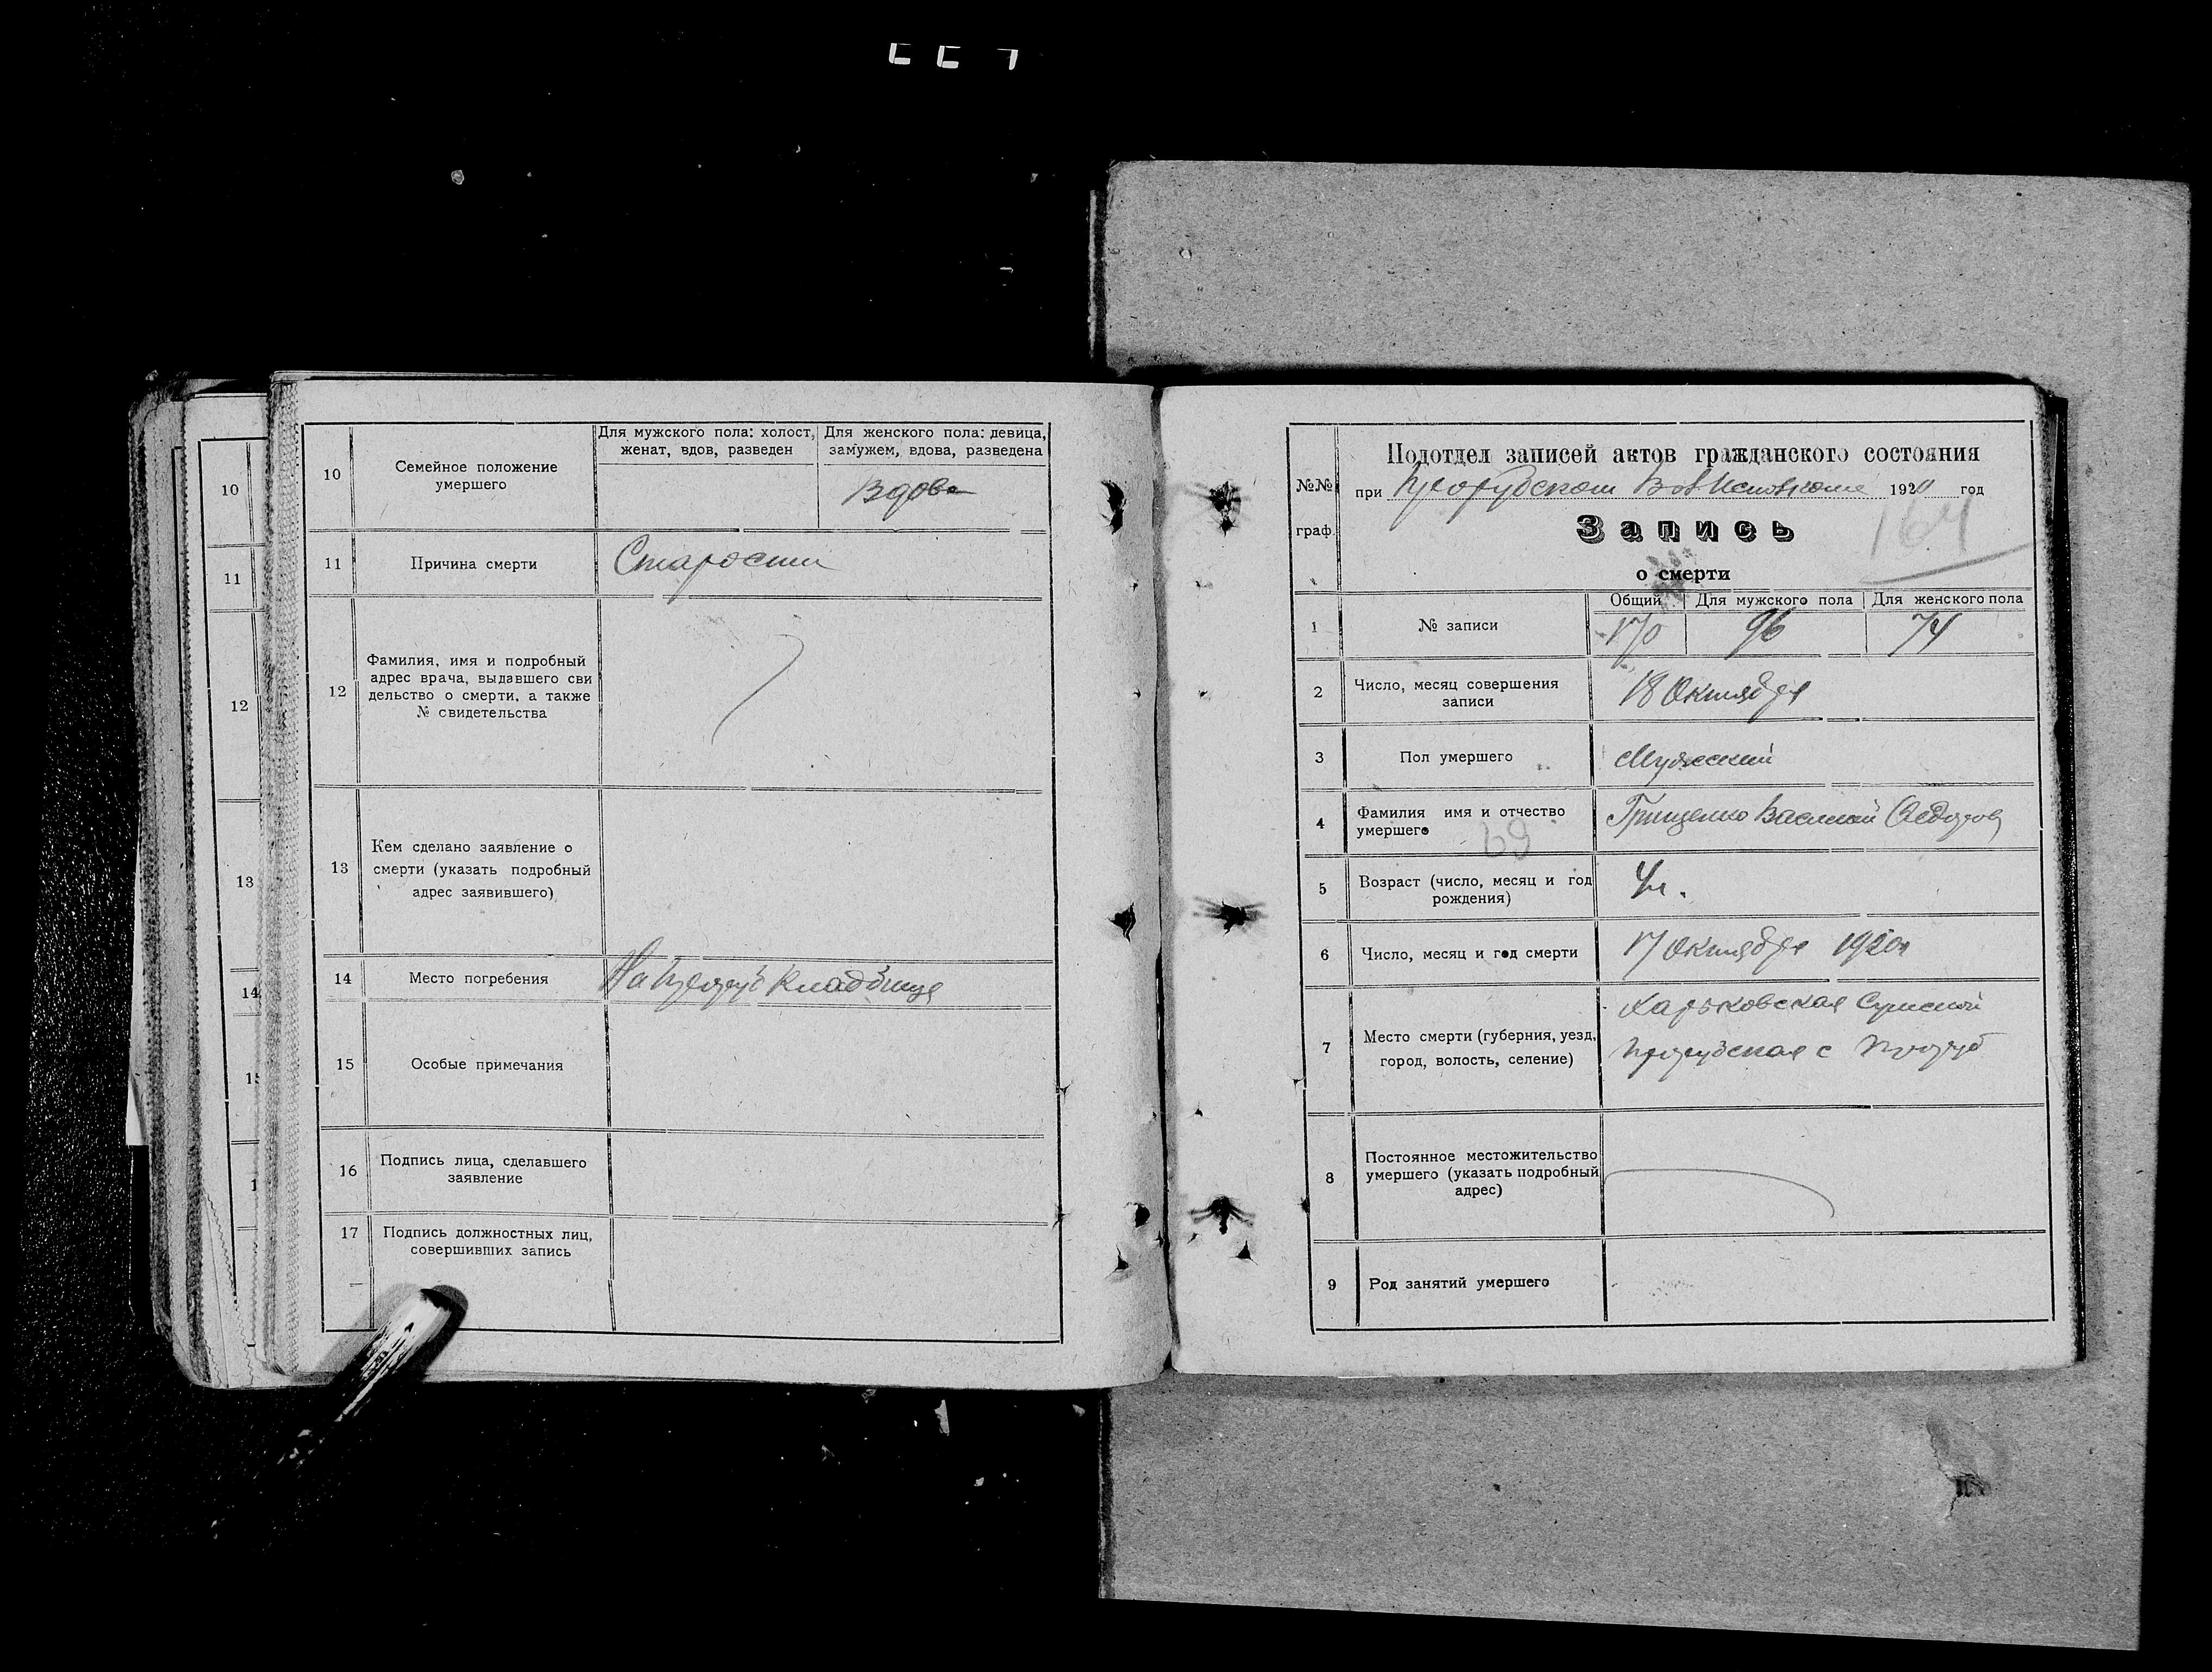 10
11
12
13
14
10
Семейное положение
умершего
Для мужского пола: холост,
женат, вдов, разведен
Для женского пола: девица,
замужем, вдова, разведена
Вдова
11
Причина смерти
Старости
12
Фамилия, имя и подробный
адрес врача, выдавшего сви
дельство о смерти, а также
№ свидетельства
13
Кем сделано заявление о
смерти (указать подробный
адрес заявившего)
14
Место погребения
На кладбище
15
Особые примечания
16
Подпись лица, сделавшего
заявление
17
Подпись должностных лиц,
совершивших запись
№№
граф.
Подотдел записей актов гражданского состояния
при 1920 год
Запись
164
о смерти
1
№ записи
Общий
Для мужского пола
Для женского пола
170
96
74
2
Число, месяц совершения
записи
18 Октября
3
Пол умершего
Мужский
4
Фамилия имя и отчество
умершего
69
Грищенко Василий Федоров
5
Возраст (число, месяц и год
рождения)
6
Число, месяц и год смерти
17 Октября 1920г
7
Место смерти (губерния, уезд,
город, волость, селение)
Харьковская Сумской
8
Постоянное местожительство
умершего (указать подробный
адрес)
9
Род занятий умершего